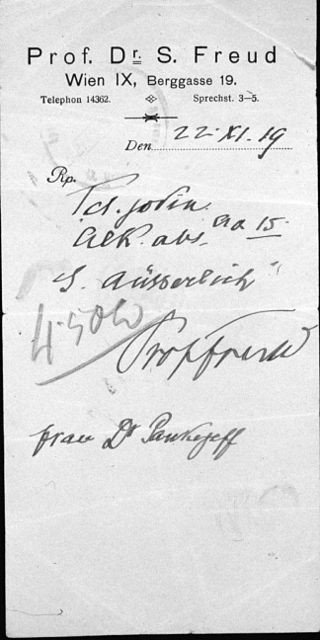 Prof. Dr. S. Freud
Wien IX, Berggasse 19.
Telephon 14362. Sprechst. 3–5.
Den 22·XI·19
Rp.
Tct. jodin.
Alk. abs. aa 15
S. äusserlich
Prof Freud
Frau Dr Pankejeff